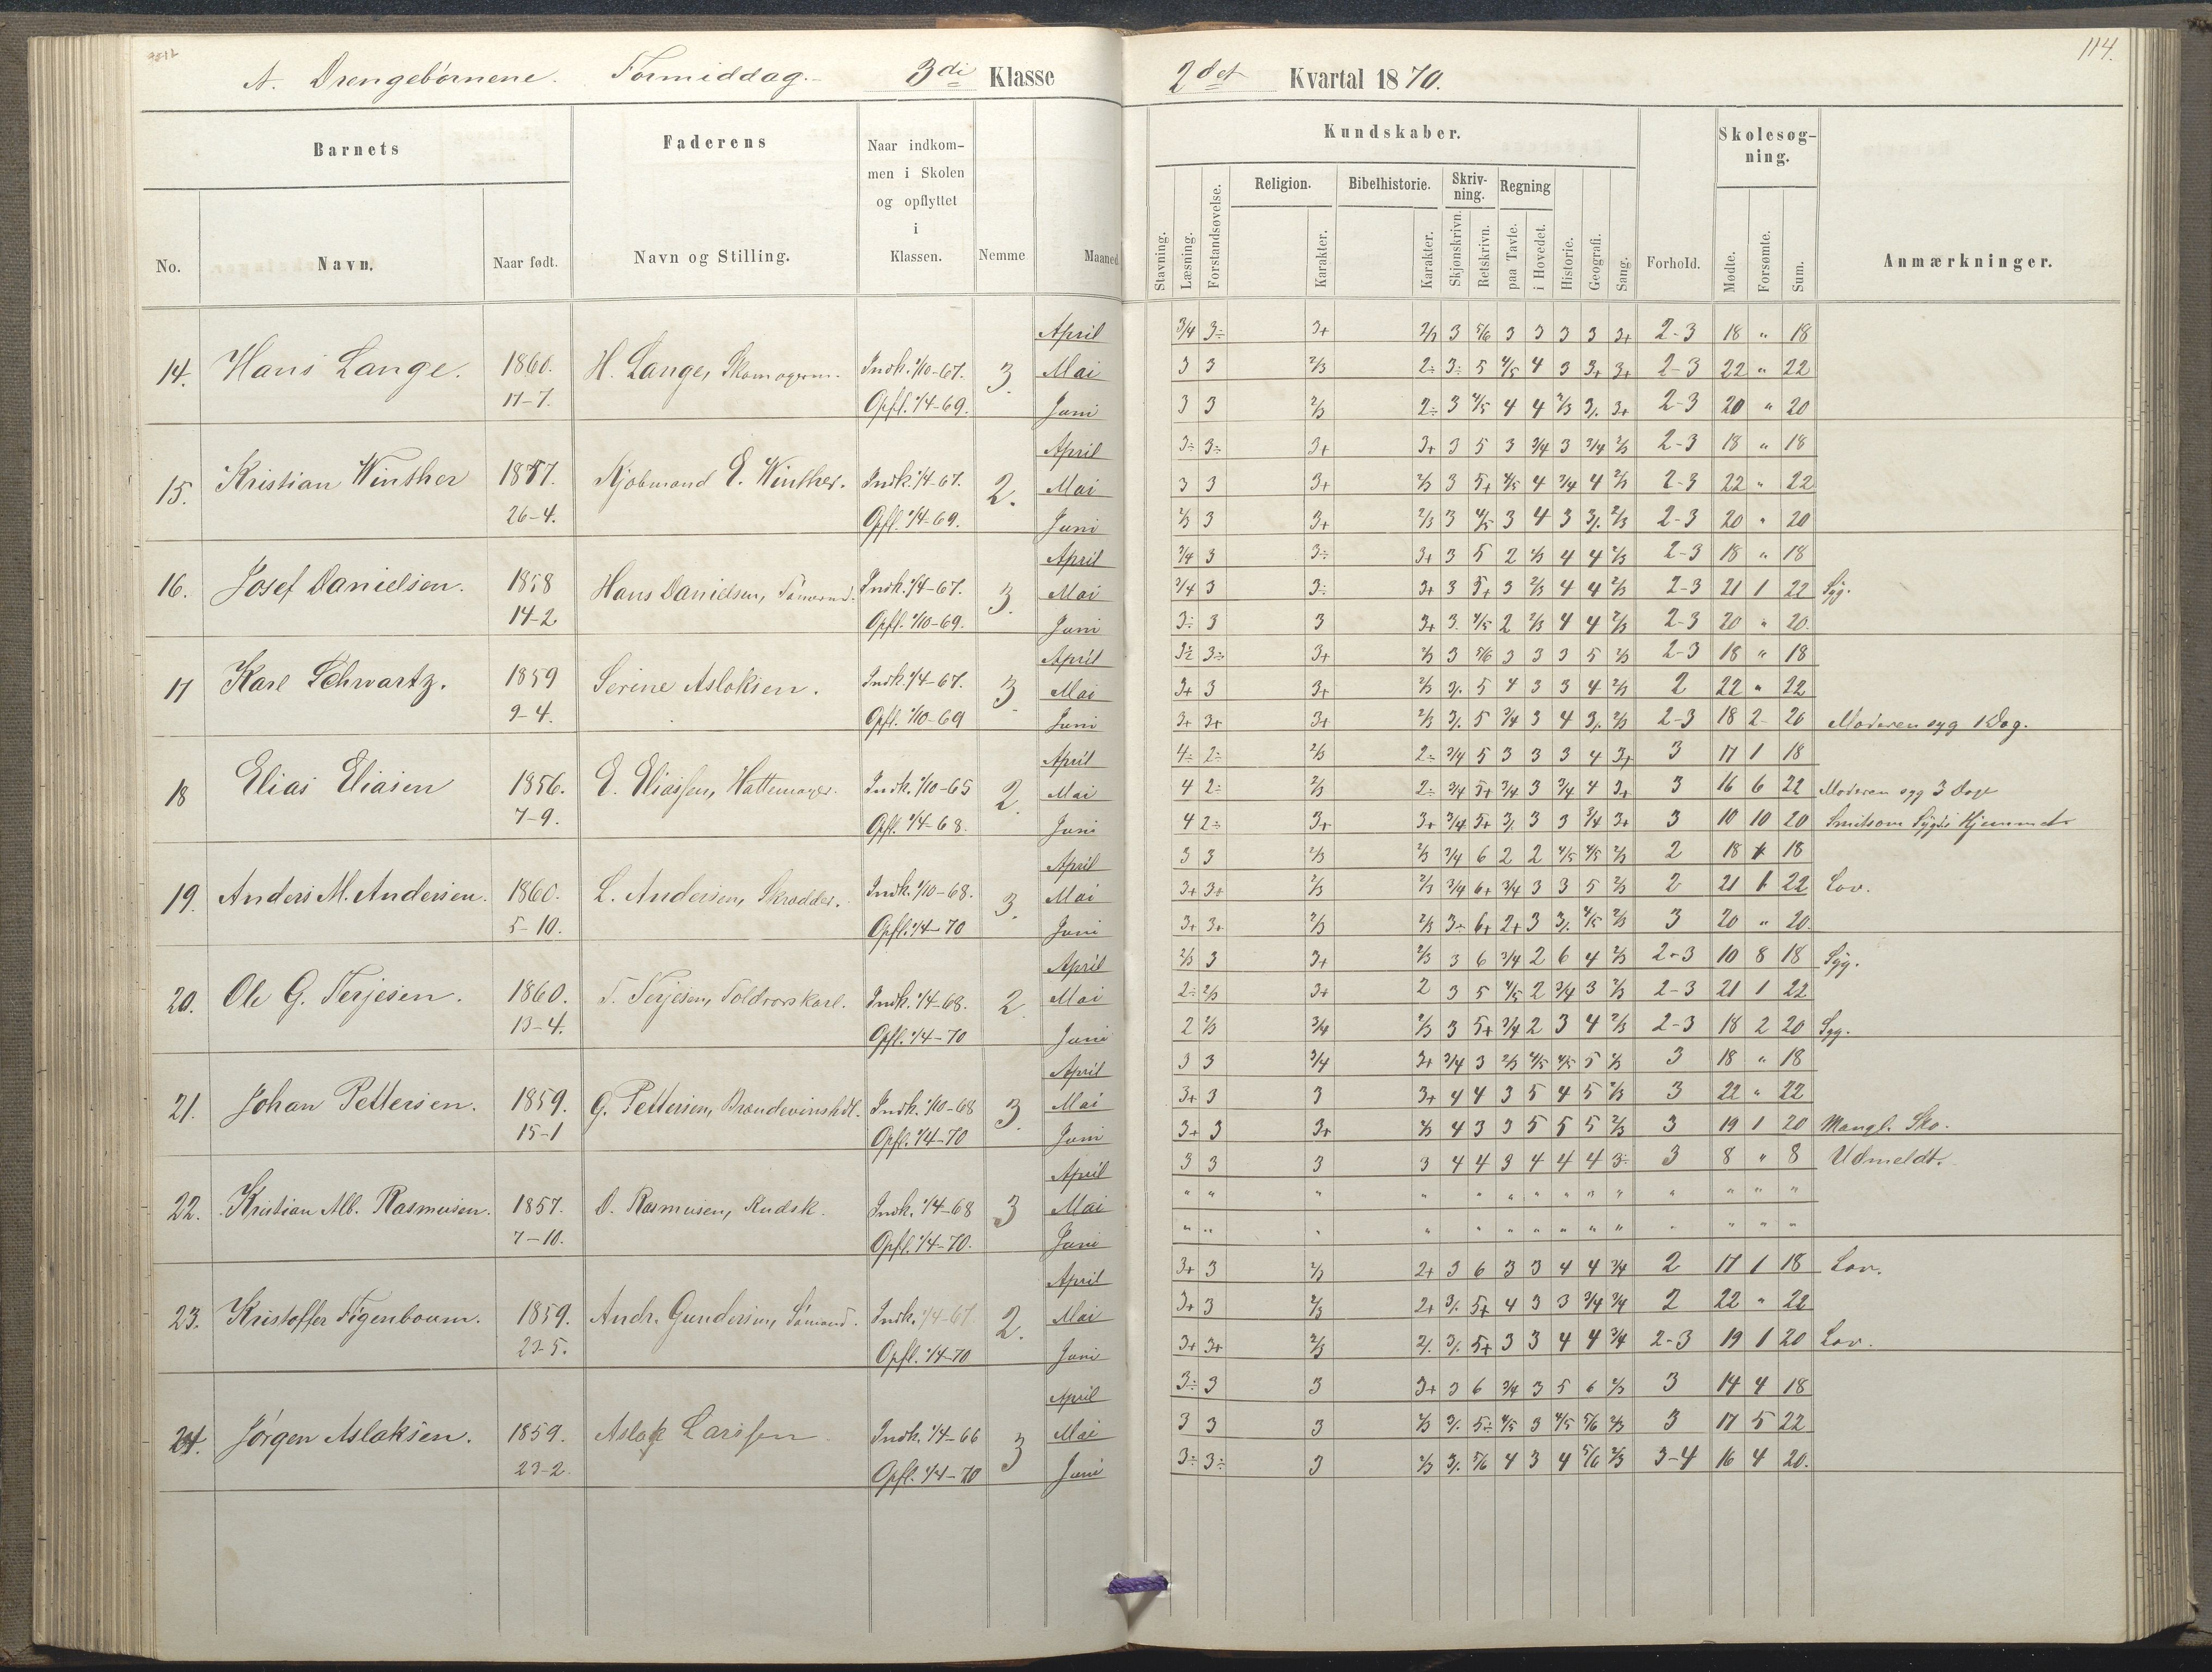 114.
A. Drengebørnene. Formiddag. 3die Klasse 2det Kvartal 1870.
Barnets Faderens Naar indkommen i Skolen og opflyttet i Klassen. Nemme Maaned
No. Navn. Naar født. Navn og Stilling.
Kundskaber. Forhold. Skolesøgning. Anmærkninger.
Stavning. Læsning. Forstandsøvelse. Religion. Karakter. Bibelhistorie. Karakter. Skrivning. Skjønskrivn. Retskrivn. Regning paa Tavle. i Hovedet. Historie. Geografi. Sang. Mødte. Forsømte. Sum.
14. Hans Lange. 1860. 17-7. H. Lange, Indk. 1/10-67. Opfl. 1/4-69. 3.
April 3/4 3÷ 3+ 2/3 3 5/6 3 3 3 3 3+ 2-3 18 " 18
Mai 3 3 2/3 2÷ 3÷ 5 4/5 4 3 3+ 3+ 2-3 22 " 22
Juni 3 3 2/3 2÷ 3 4/5 4 4 2/3 3/. 3+ 2-3 20 " 20
15. Kristian Winther 1857. 26-4. Kjøbmand E. Winther. Indk. 1/4-67. Opfl. 1/4-69. 2.
April 3÷ 3÷ 3+ 3+ 3 5 3 3/4 3 3/4 2/3 2-3 18 " 18
Mai 3 3 3+ 2/3 3 5+ 4/5 4 3/4 4 2/3 2-3 22 " 22
Juni 2/3 3 3+ 2/3 3 4/5 3 4 3 3/. 2/3 2-3 20 " 20
16. Josef Danielsen. 1858 14-2 Hans Danielsen, Indk. 1/4-67. Opfl. 1/10-69. 3.
April 3/4 3 3÷ 3+ 3 5 2 2/3 4 4 2/3 2-3 18 " 18
Mai 3/4 3 3÷ 3+ 3 5+ 3 2/3 4 4 2/3 2-3 21 1 22 Syg.
Juni 3÷ 3 3 3+ 3. 4/5 2 2/3 4 4 2/3 2-3 20 " 20.
17 Karl Schwartz. 1859 9-4. Serine Asloksen. Indk. 1/4-67. Opfl. 1/10-69 3.
April 3÷ 3÷ 3+ 2/3 3 5/6 3 3 3 5 2/3 2-3 18 " 18
Mai 3+ 3 3+ 2/3 3/. 5 4 3 3 4 2/3 2 22 " 22
Juni 3+ 3+ 3+ 2/3 3/. 5 3/4 3 4 3/. 2/3 2-3 18 2 20 Moderen syg 1 Dag.
18 Elias Eliasen 1856. 7-9. E. Eliassen, Hattemager. Indk. 1/10-65 Opfl. 1/4-68. 2.
April 4÷ 2÷ 2/3 2÷ 3/4 5 3 3 3 4 3+ 3 17 1 18
Mai 4 2÷ 2/3 2÷ 3/4 5+ 3/4 3 3/4 4 3+ 3 16 6 22 Moderen syg 3 Dage
Juni 4 2÷ 3+ 3+ 3/4 5+ 3/. 3 3 3/4 3+ 3 10 10 20 Smitsom Sygd. i Hjemmet
19. Anders M. Andersen. 1860. 5-10. L. Andersen, Skrædder. Indk. 1/10-68. Opfl. 1/4-70 3.
April 3 3 2/3 2/3 3/4 6 2 2 4/5 4/5 2/3 2 18 " 18
Mai 3+ 3+ 2/3 2/3 3/4 6+ 3/4 3 3 5 2/3 2 21 1 22 Lov.
Juni 3+ 3+ 2/3 2/3 3÷ 6+ 2+ 3 3/. 4/5 2/3 3 20 " 20.
20. Ole G. Terjesen. 1860. 13-4. T. Terjesen, Toldrorskarl. Indk. 1/4-68. Opfl. 1/4-70 2.
April 2/3 3 3+ 2/3 3 6 3/4 2 6 4 2/3 2-3 10 8 18 Syg.
Mai 2÷ 2/3 3+ 2 3 5 4/5 2 3/4 3 2/3 2-3 21 1 22
Juni 2 2/3 3/4 2/3 3 5+ 3/4 2 3 4 2/3 2-3 18 2 20 Syg.
21. Johan Pettersen. 1859. 15-1 G. Pettersen, Brændevinshdl. Indk. 1/10-68 Opfl. 1/4-70 3.
April 3 3 3/4 3+ 3/4 3 2/3 4/5 4/5 5 2/3 3 18 " 18
Mai 3+ 3 3 3+ 4 4 3 5 4 5 2/3 3 22 " 22
Juni 3+ 3 3+ 2/3 4 3 3 5 5 5 2/3 3 19 1 20 Mangl. Sko.
22. Kristian Alb. Rasmusen. 1857. 7-10. O. Rasmusen, Indk. 1/4-68 Opfl. 1/4-70. 3
April 3 3 3 3 4 4 3 4 4 4 3÷ 3 8 " 8 Udmeldt.
Mai " " " " " " " " " " " " " " "
Juni " " " " " " " " " " " " " " "
23. Kristoffer Figenboum. 1859. 23-5. Andr. Gundersen, Indk. 1/4-67. Opfl. 1/4-70 2.
April 3+ 3 2/3 2+ 3 6 3 3 4 4 3/4 2 17 1 18 Lov.
Mai 3+ 3 2/3 2+ 3/. 5+ 4 3 3 3/4 3/4 2 22 " 22
Juni 3+ 3+ 2/3 2/. 3/. 5+ 3 3 4 4 3/4 2-3 19 1 20 Lov.
24. Jørgen Aslaksen. 1859. 23-2. Aslak Larssen Indk. 1/4-66 Opfl. 1/4-70 3
April 3÷ 3 3 3+ 3 6 3/4 3 5 6 2/3 3 14 4 18
Mai 3 3 3 2/3 3/. 5÷ 4/5 3 4/5 5/6 2/3 3 17 5 22
Juni 3÷ 3÷ 3 2/3 3/. 5/6 4 3 4 5/6 2/3 3-4 16 4 20.